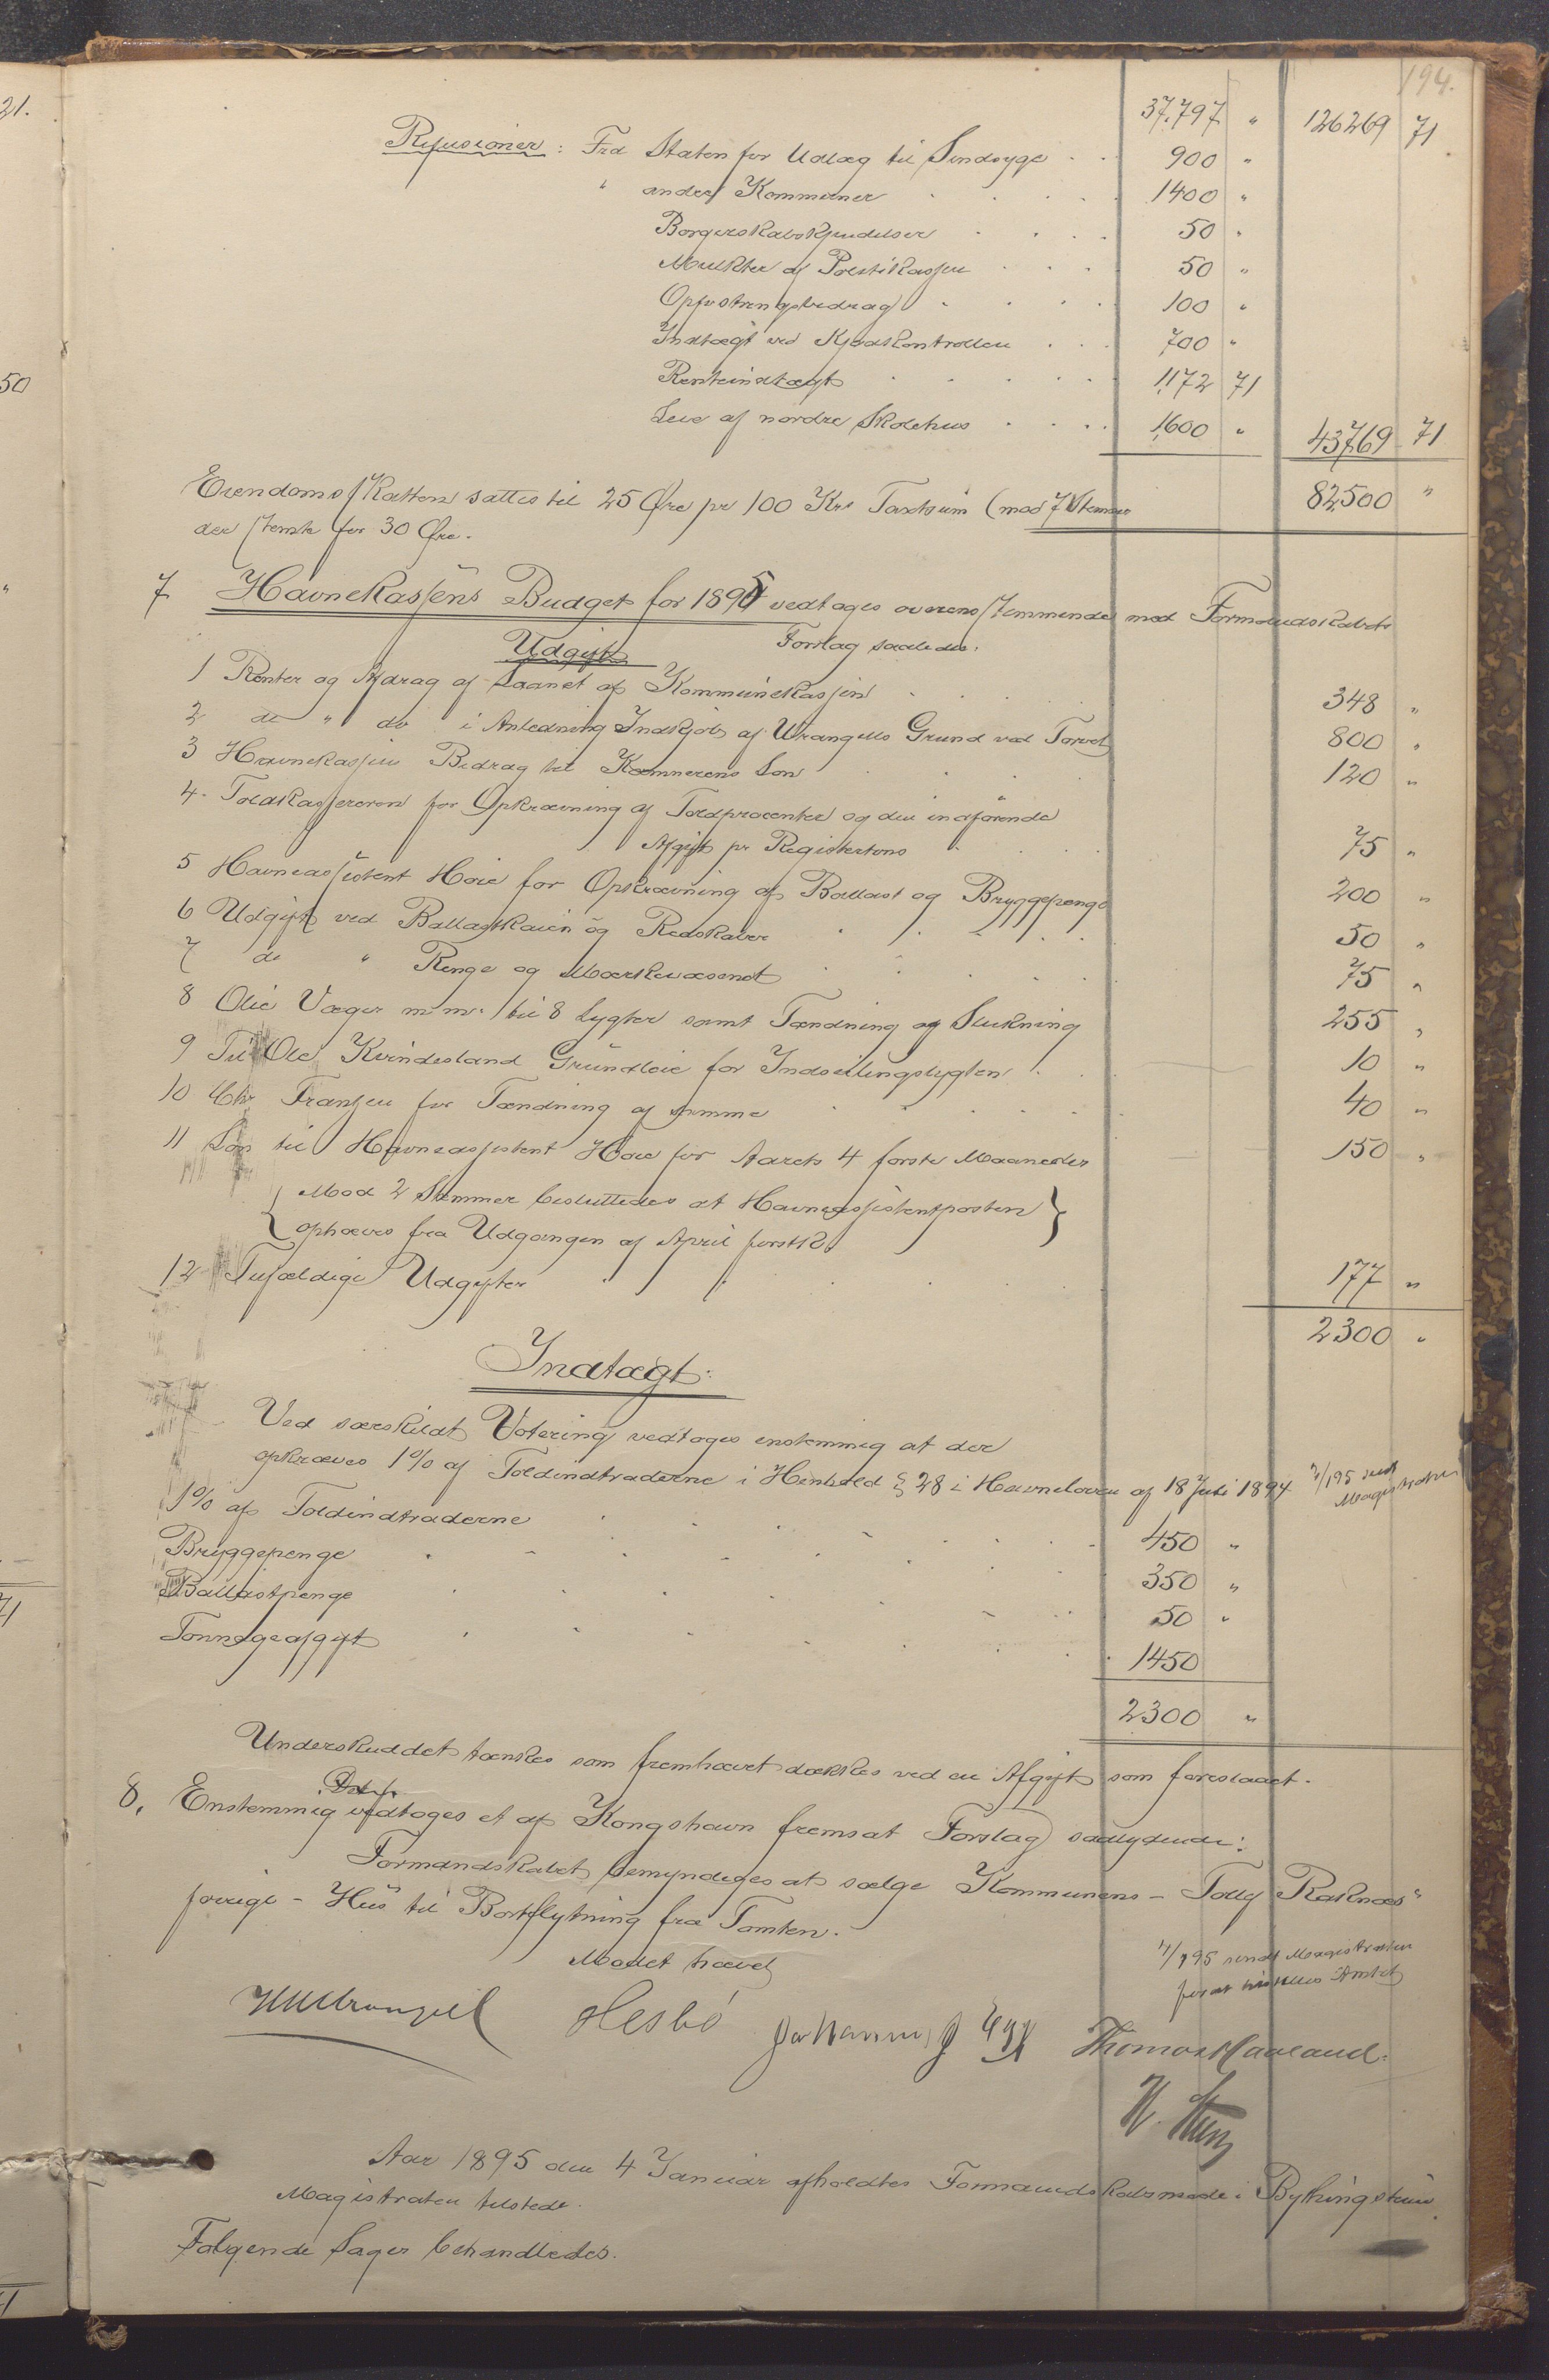 194.
37.797 " 126269 71
Refusioner: Fra Staten for Udlæg til Sindsyge . . 900 "
" andre Kommuner . . . . 1400 "
Borgerskabskjendelser . . . . 50 "
Mulkter af Politikassen . . . 50 "
Opfostringsbidrag . . . . 100 "
Indtægt ved Kjødkontrollen . . . 700 "
Renteindtægt . . . . . 1172 71
Leie af nordre Skolehus . . . . 1600 " 43769 71
82500 "
Eiendomsskatten sattes til 25 Øre pr 100 Krs Taxtsum (mod 7 Stemmer
der stemte for 30 Øre.
7 Havnekassens Budget for 1895 vedtoges overensstemmende med Formandskabets
Forslag saaledes:
Udgift
1 Renter og Afdrag af Laanet af Kommunekassen . . . 348 "
2 do " do i Anledning Indkjøb af Wrangells Grund ved Torvet 800 "
3 Havnekassens Bidrag til Kæmnerens Løn . . . 120 "
4. Toldkassereren for Opkrævning af Toldprocenter og den indførende
Afgift pr Registertons . . . 75 "
5 Havneassistent Høie for Opkrævning af Ballast og Bryggepenge 200 "
6 Udgift ved Ballastkaien og Redskaber . . . . 50 "
7 do " Ringe og Mærkevæsenet . . . . 75 "
8 Olie Væger m.m. til 8 Lygter samt Tænding og Slukning 255 "
9 Til Ole Kvindesland Grundleie for Indseilingslygten . . 10 "
10 Chr Fransen for Tændning af samme . . . . 40 "
11 Løn til Havneassistent Høie for Aarets 4 første Maaneder 150 "
{ Mod 2 Stemmer besluttedes at Havneassistentposten }
ophæves fra Udgangen af April førstk.
12 Tilfældige Udgifter . . . . 177 "
2300 "
Indtægt:
Ved særskildt Votering vedtoges enstemmig at der
opkræves 1% af Toldindtraderne i Henhold § 28 i Havneloven af 18 Juli 1894 7/1 95 sendt
Magistraten
1% af Toldindtraderne . . . . . . 450 "
Bryggepenge . . . . . . 350 "
Ballastpenge . . . . . . 50 "
Tonnageafgift . . . . . . 1450
2300 "
Underskuddet tænkes som fremhævet dækkes ved en Afgift som foreslaaet.
8. Enstemmig vedtoges et af Kongshavn fremsat Forslag saalydende:
Formandskabet bemyndiges at sælge Kommunens - Tolly Raknæs"
forrige - Hus til Bortflytning fra Tomten.
Mødet hævet
7/1 95 sendt Magistraten
for at tilstilles Amtet
HWrangell Hesbö Johannes Thomas Haaland.
Aar 1895 den 4 Januar afholdtes Formandskabsmøde i Bythingstuen.
Magistraten tilstede.
Følgende Sager behandledes.
21.
50
71